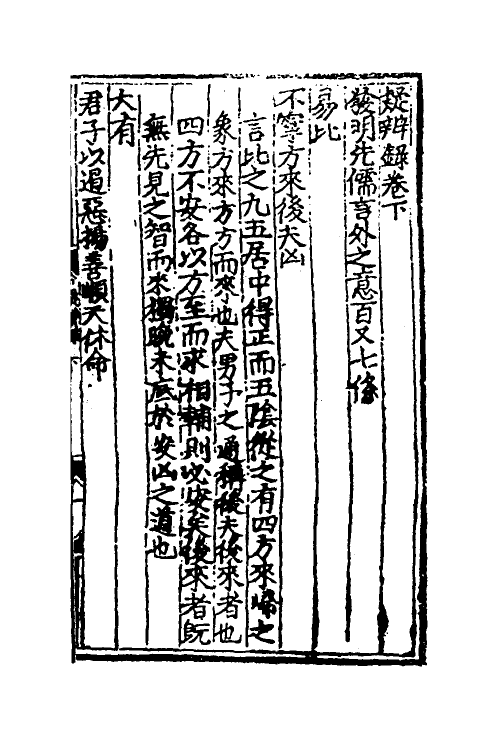 疑辨錄卷下
發明先儒言外之意百又七條
易比
不寧方來後夫凶
言此之九五居中得正而五陰從之有四方來歸之
象方來方方而來也夫男子之通稱後夫後來者也
四方不安各以方至而求相輔則必安矣後來者旣
無先見之智而來獨晚未底於安凶之道也
大有
君子以遏惡揚善順天休命